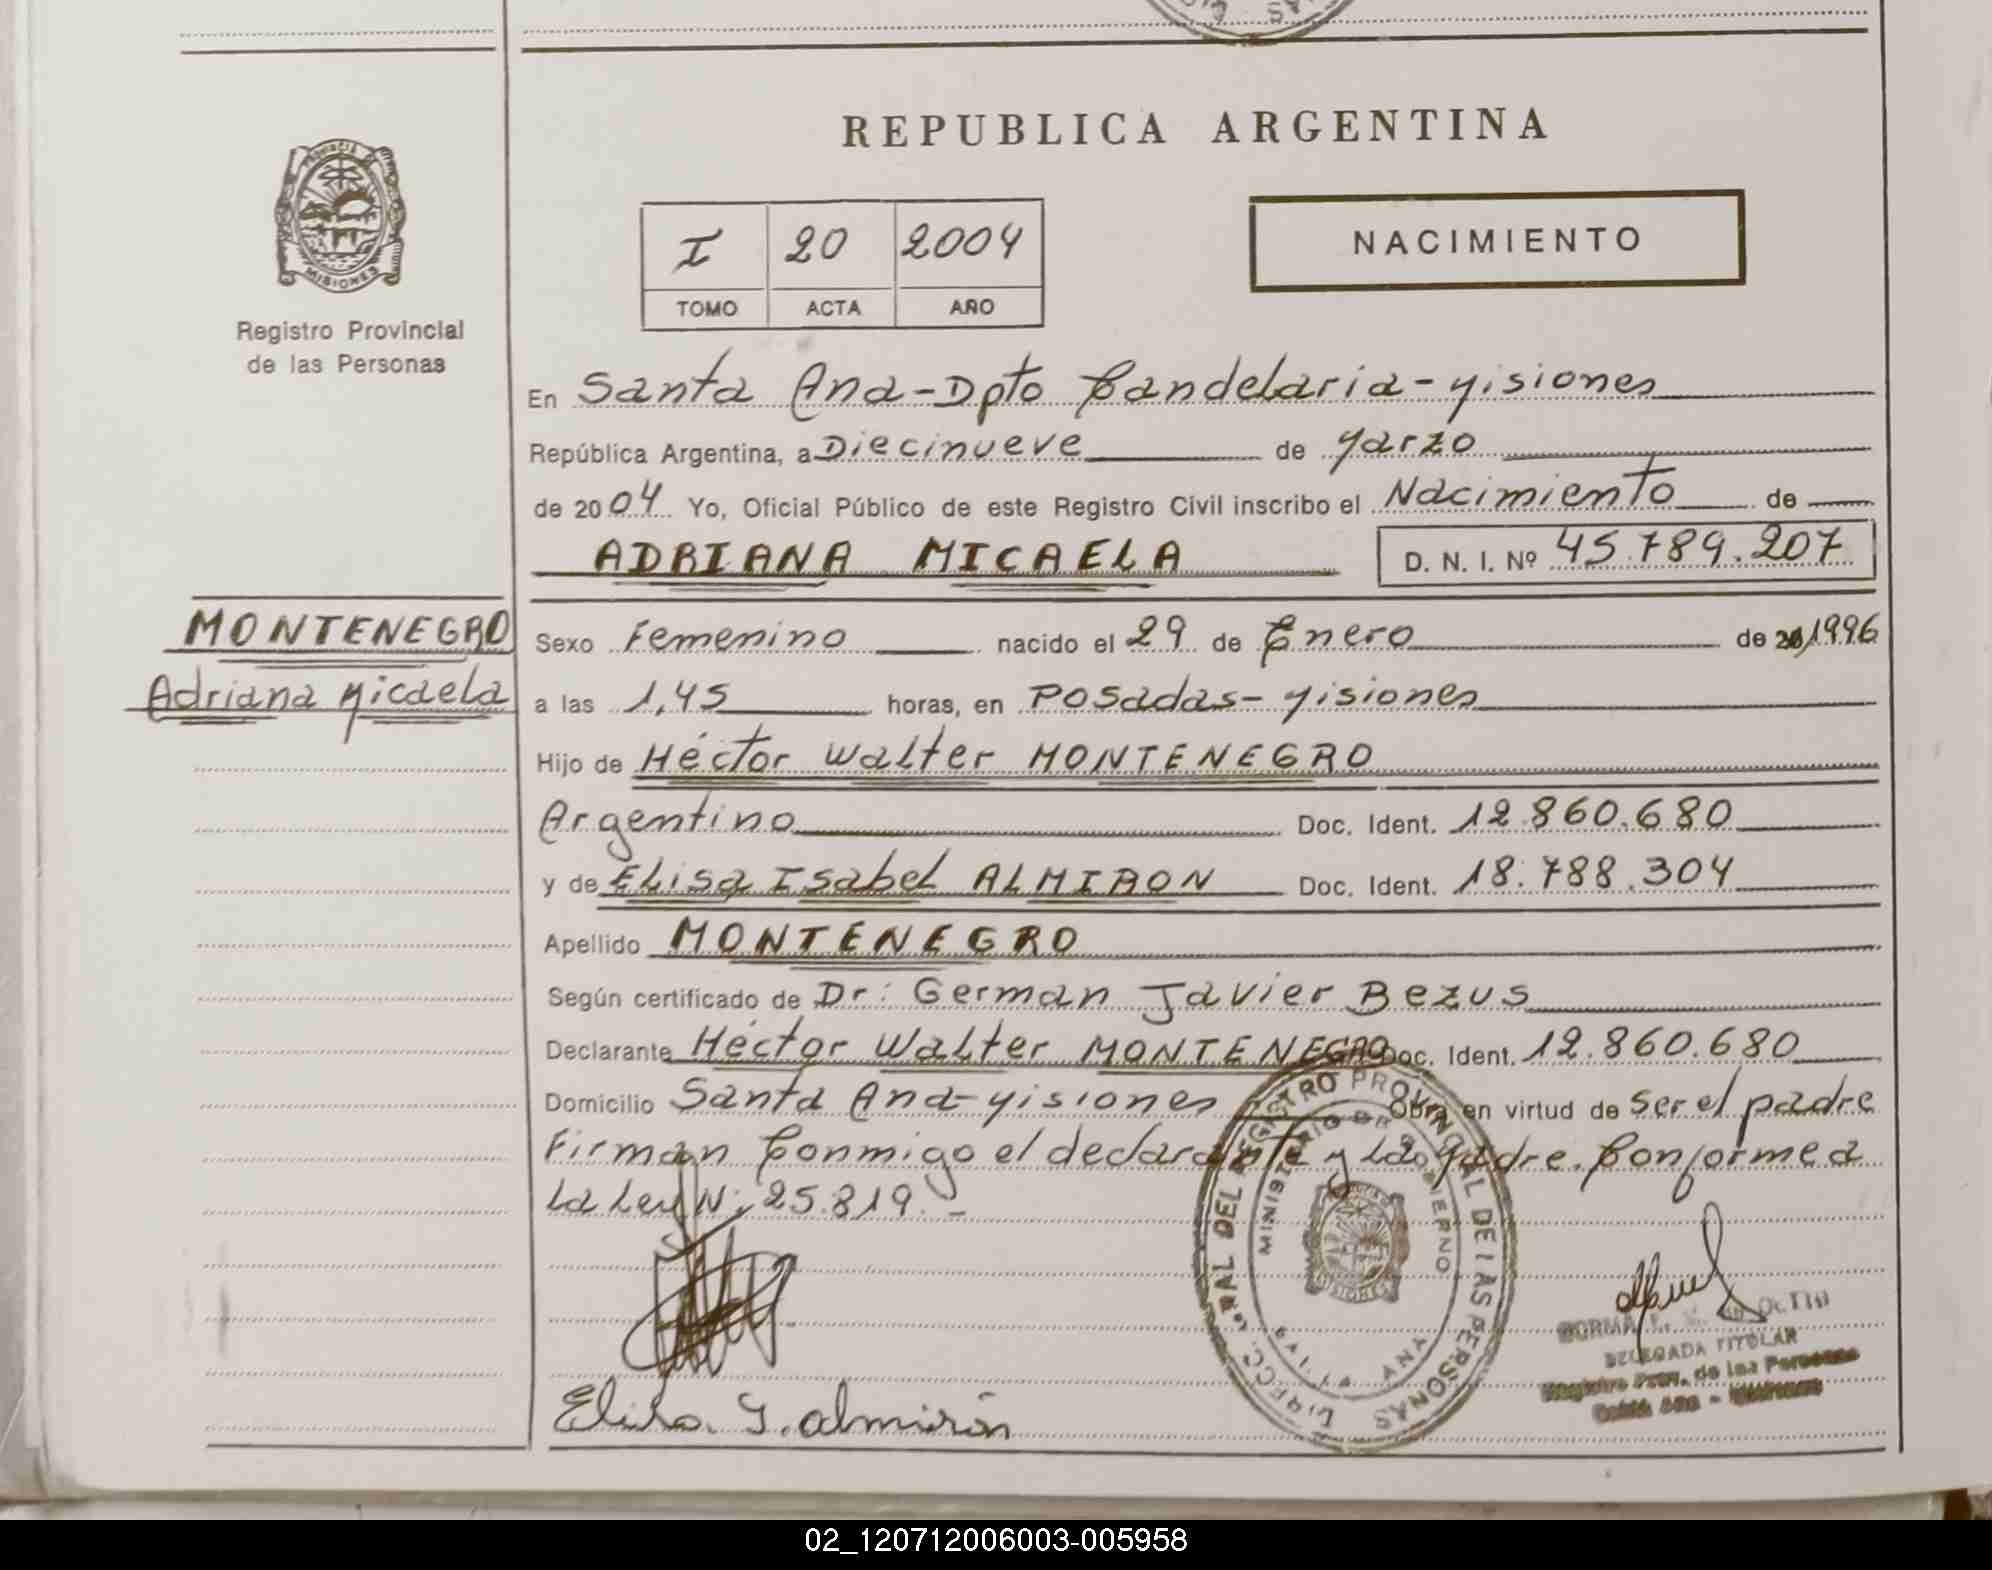 REPUBLICA ARGENTINA
PROVINCIA DE MISIONES
Registro Provincial
de las Personas
I 20 2004
TOMO ACTA AÑO
NACIMIENTO
En Santa Ana-Dpto Candelaria-Misiones
República Argentina, a Diecinueve de Marzo
de 2004 Yo, Oficial Público de este Registro Civil inscribo el Nacimiento de
ADRIANA MICAELA D. N. I. Nº 45.789.207
MONTENEGRO
Adriana Micaela
Sexo Femenino nacido el 29 de Enero de 1996
a las 1,45 horas, en Posadas-Misiones
Hijo de Héctor Walter MONTENEGRO
Argentino Doc. Ident. 12.860.680
y de Elisa Isabel ALMIRON Doc. Ident. 18.788.304
Apellido MONTENEGRO
Según certificado de Dr: German Javier Bezus
Declarante Héctor Walter MONTENEGRO Doc. Ident. 12.860.680
Domicilio Santa Ana-Misiones Obra en virtud de Ser el padre
Firman Conmigo el declarante y La Madre. Conforme a
La Ley N: 25.819.-
DEL REGISTRO PROVINCIAL DE LAS PERSONAS
MINISTERIO DE GOBIERNO
MISIONES
ANA
Elisa I. Almirón
DELEGADA TITULAR
Registro Prov. de las Personas
Santa Ana - Misiones
02_120712006003-005958